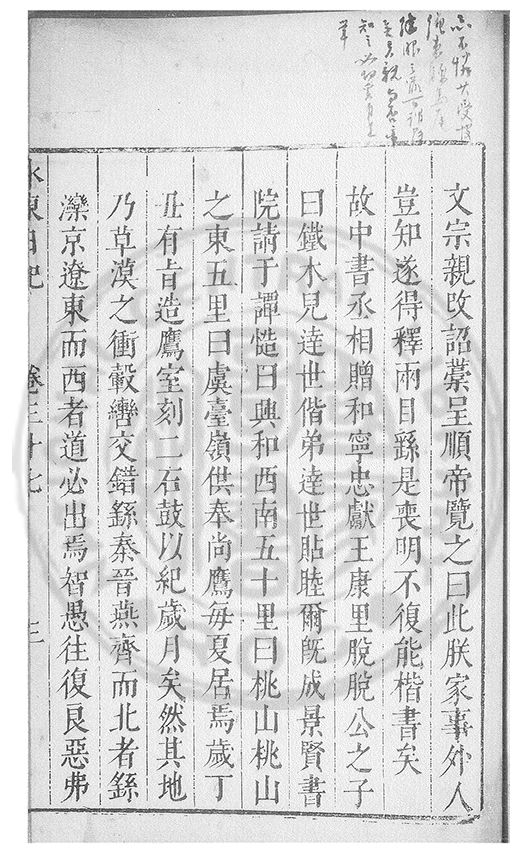 文宗親改詔藁呈順帝覽之曰此朕家事外人
豈知遂得釋兩目繇是喪明不復能楷書矣
故中書丞相贈和寧忠獻王康里脫脫公之子
曰鐵木兒達世偕弟達世貼睦爾既成景賢書
院請于譚慥曰興和西南五十里曰桃山桃山
之東五里曰虞臺嶺供奉尚鷹每夏居焉歲丁
丑有旨造鷹室刻二石鼓以紀歲月矣然其地
乃草漠之衝轂轡交錯繇秦晉燕齊而北者繇
灤京遼東而西者道必出焉智愚往復良惡弗
水東日記 卷三十七 三